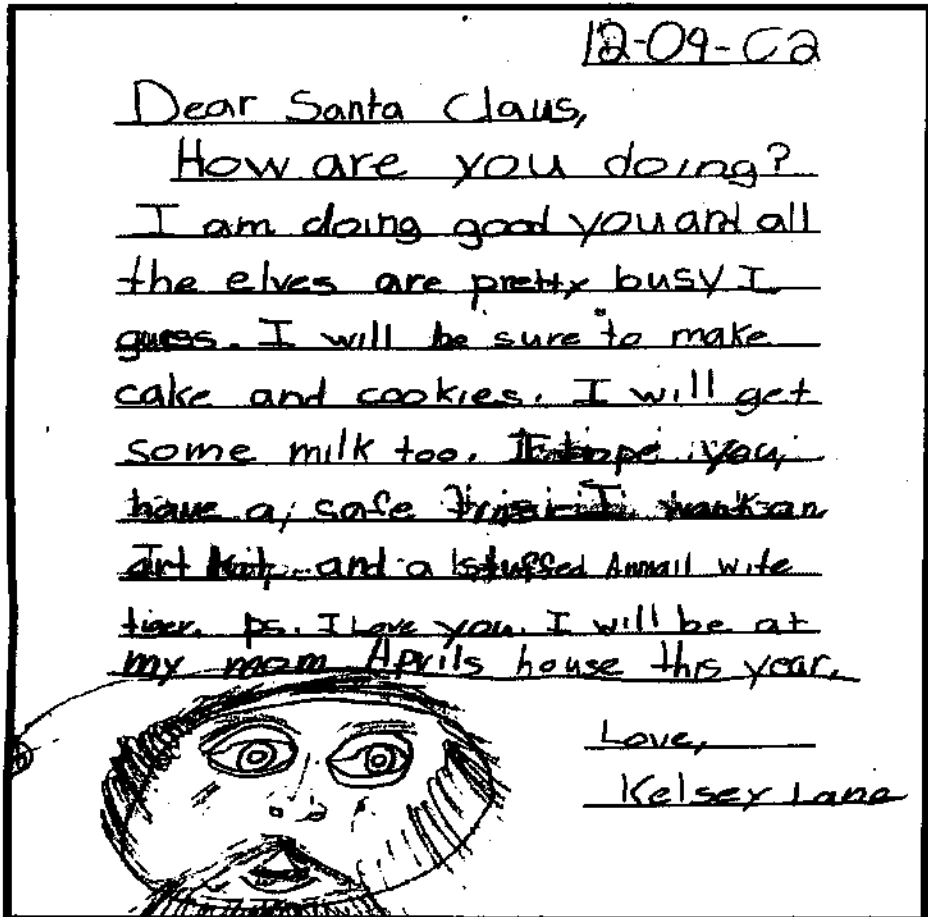 12-09-02
Dear Santa Claus,
How are you doing?
I am doing good you and all
the elves are pretty busy I
guess. I will be sure to make
cake and cookies. I will get
some milk too. I hope you
have a safe I want an
Art and a stuffed Anmail wite
tiger. ps. I Love you. I will be at
my mom Aprils house this year.
Love,
Kelsey Lane